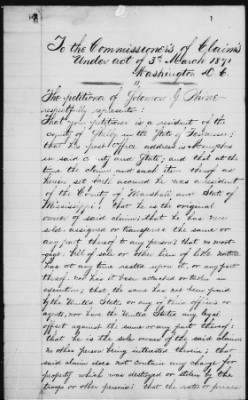 To the Commissioners of Claims
Under act of 3rd March 1871
Washington D.C.
The petitioner of Solomon G
respectfully represents:
That your petitioner is a resident of the
county of Shelby in the State of Tennessee;
that his post office address is Memphis
in said county and State; and that at the
time the claim and each item thereof as
herein set forth accrued he was a resident
of the County of Marshall and State of
Mississippi; that he is the original
owner of said claim; that he has never
sold, assigned or transferred the same or
any part thereof to any person; that no mort-
gage, bill of sale or other lien of like nature
has at any time rested upon it, or any part
thereof, nor has it been attached or taken in
execution; that the same has not been paid
by the United States or any of their officers or
agents, nor have the United States any legal
offset against the same or any part thereof;
that he is the sole owner of the said claim
no other person being interested therein; the
said claim does not contain any charge for
property which was destroyed or stolen by the
troops or other persons; that the rates or prices